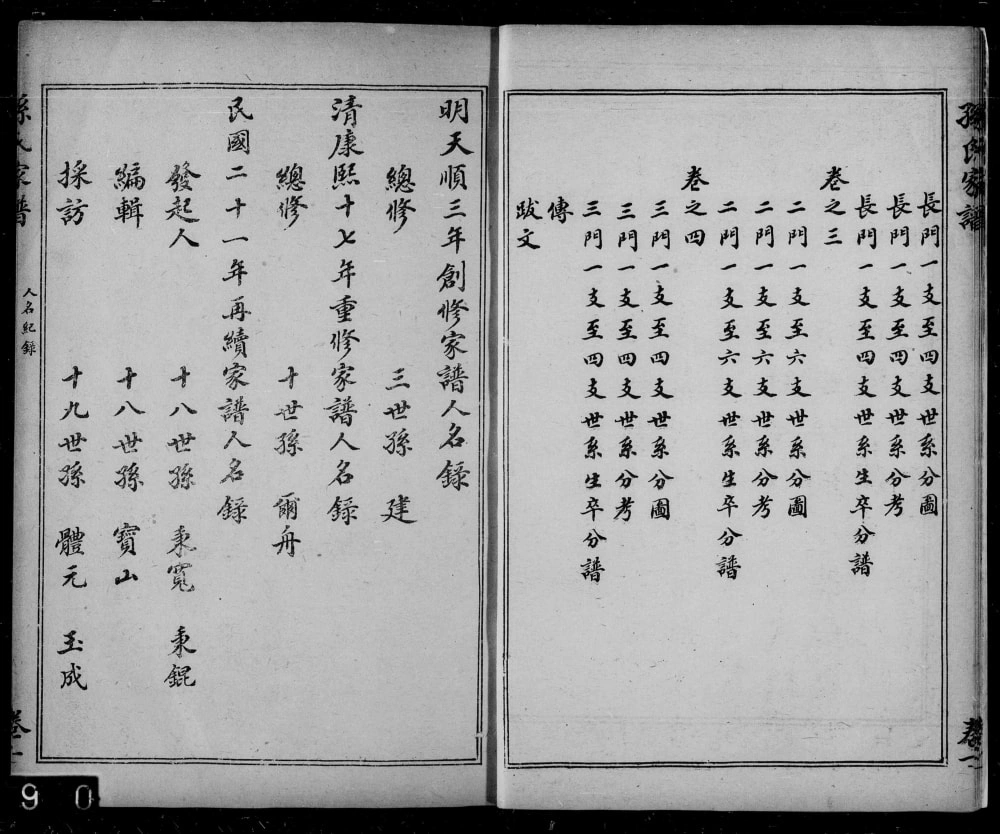 孫氏家譜
長門一支至四支世系分圖
長門一支至四支世系分考
長門一支至四支世系生卒分譜
卷之三
二門一支至六支世系分圖
二門一支至六支世系分考
二門一支至六支世系生卒分譜
卷之四
三門一支至四支世系分圖
三門一支至四支世系分考
三門一支至四支世系生卒分譜
傳
跋文
卷一
明天順三年創修家譜人名錄
總修 三世孫 建
清康熙十七年重修家譜人名錄
總修 十世孫 爾舟
民國二十一年再續家譜人名錄
發起人 十八世孫 秉寬 秉錕
編輯 十八世孫 寶山
採訪 十九世孫 體元 玉成
孫氏家譜
人名紀錄
卷一
90